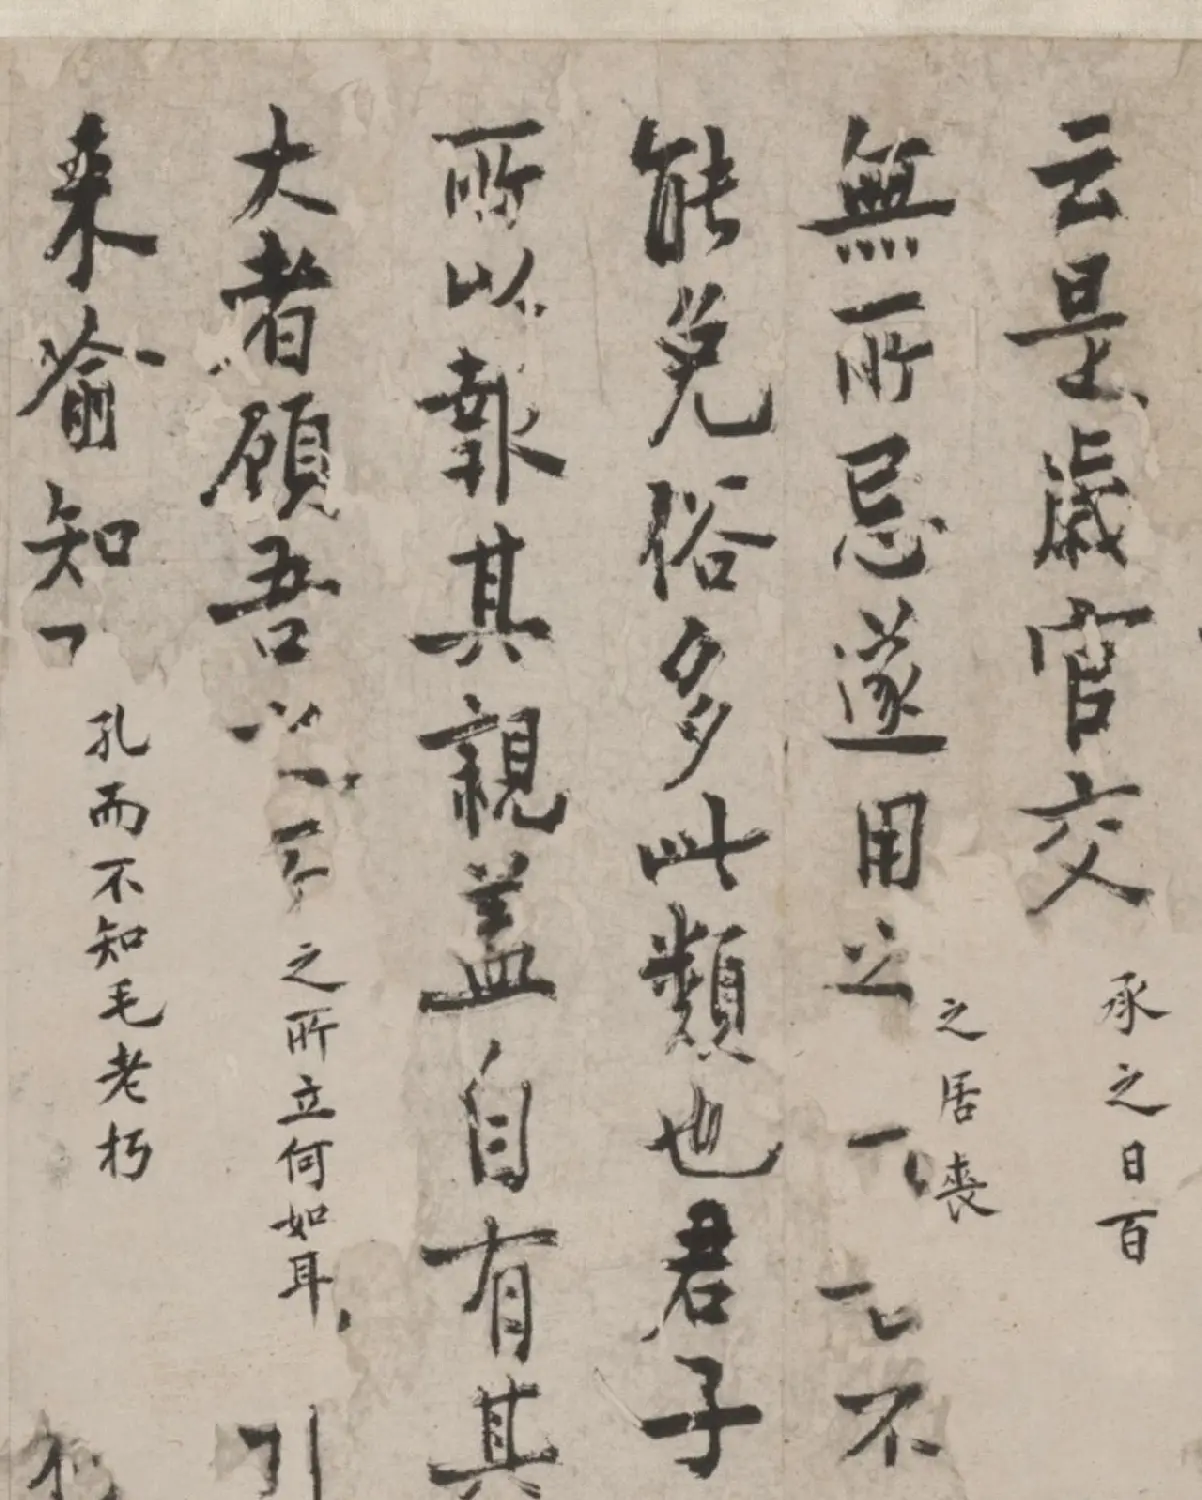 云是歲官交承之日百
無所忌遂用之之居喪不
能免俗多此類也君子
所以報其親蓋自有其
大者顧吾之所立何如耳
来喻知孔而不知毛老朽